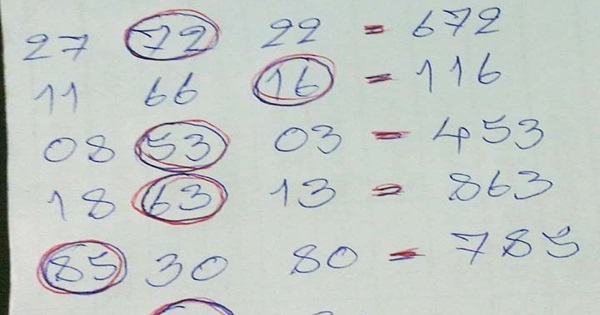 27 72 22 = 672
11 66 16 = 116
08 53 03 = 453
18 63 13 = 863
85 30 80 = 785